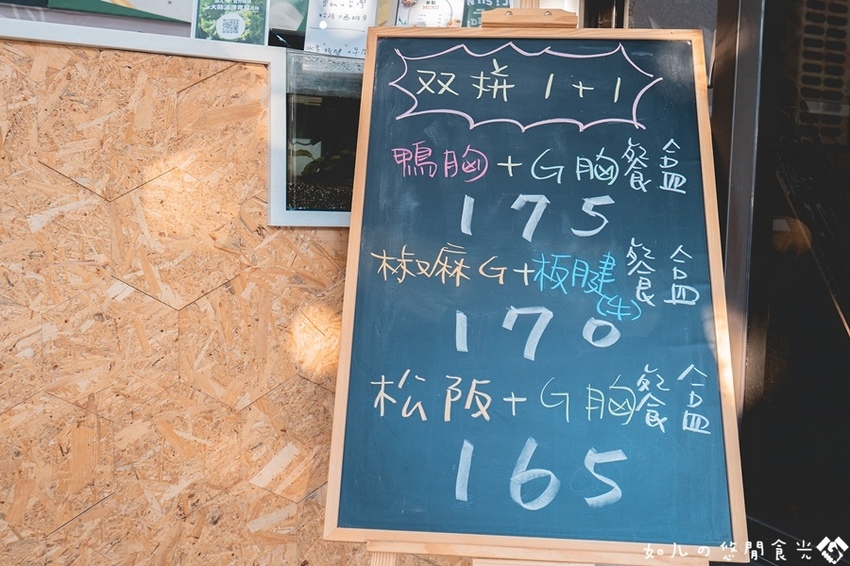 双拼 1+1
鴨胸+G胸餐盒
175
椒麻G+板腱餐盒
(牛)
170
松阪+G胸餐盒
165
如儿の悠閒食光